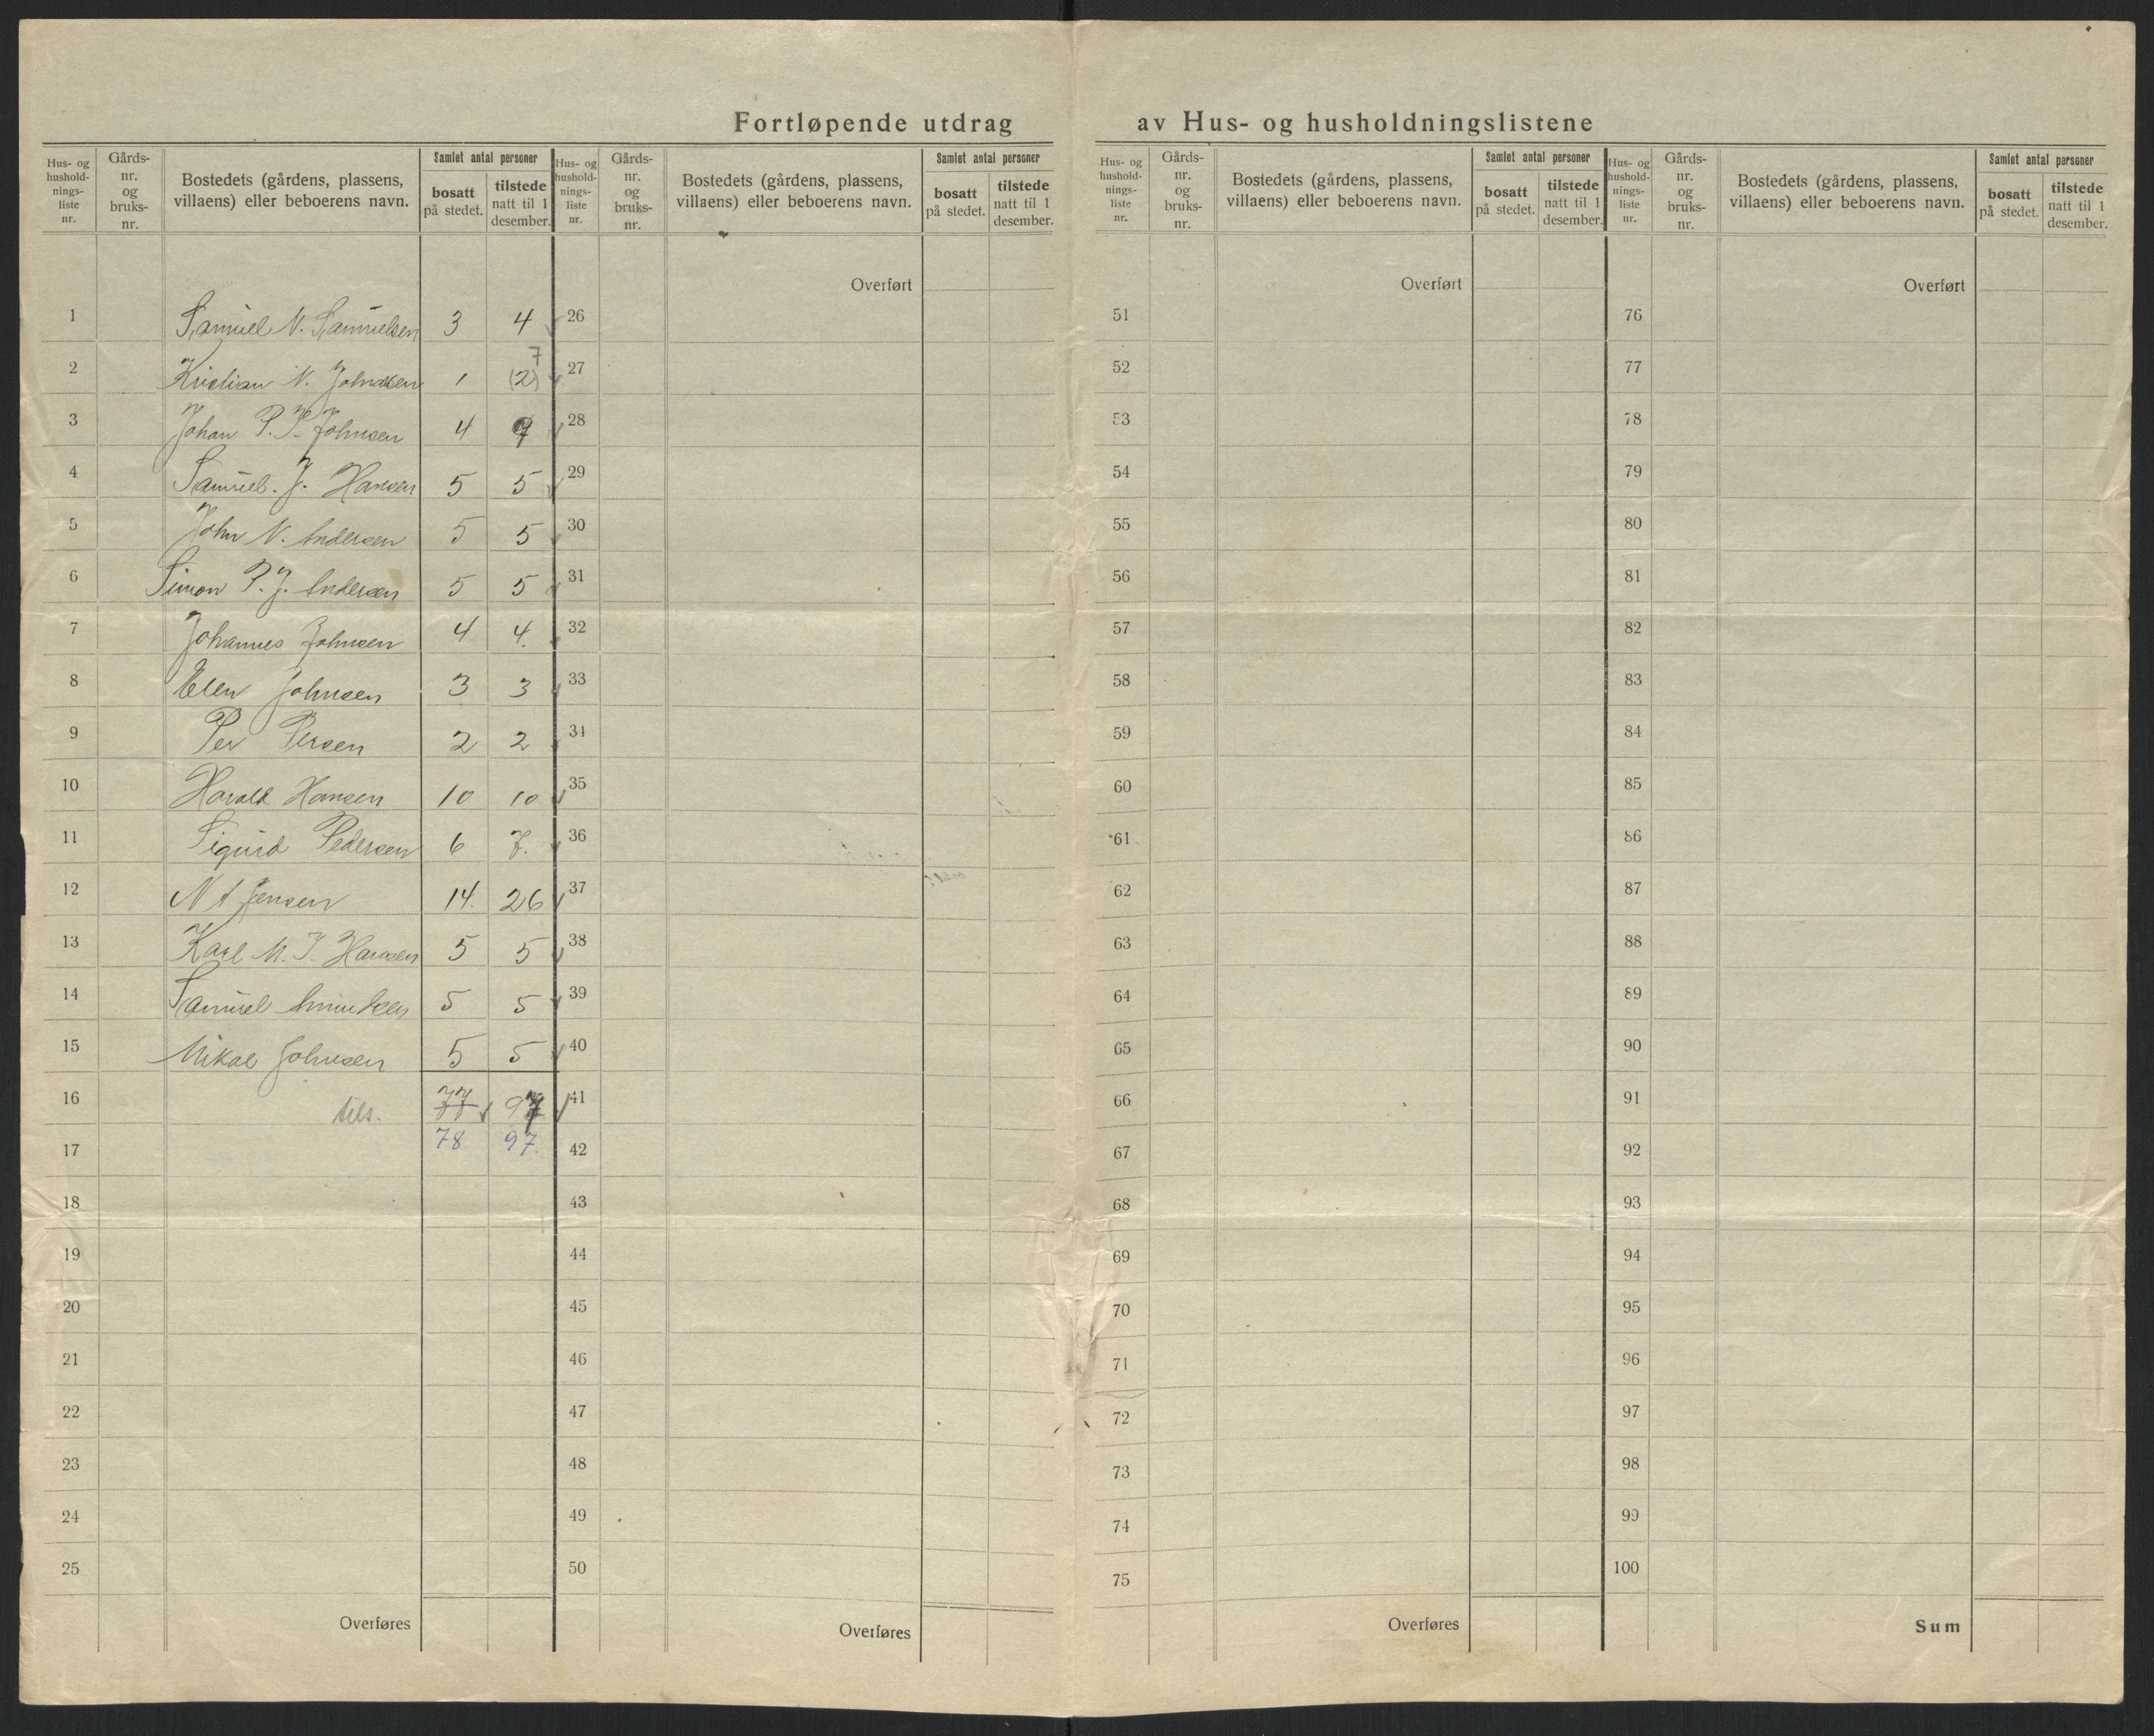 Fortløpende utdrag av Hus- og husholdningslistene
Hus- og hushold-nings-liste nr. Gårds-nr. og bruks-nr. Bostedets (gårdens, plassens, villaens) eller beboerens navn. Samlet antal personer bosatt på stedet. tilstede natt til 1 desember.
Hus- og hushold-nings-liste nr. Gårds-nr. og bruks-nr. Bostedets (gårdens, plassens, villaens) eller beboerens navn. Samlet antal personer bosatt på stedet. tilstede natt til 1 desember.
Hus- og hushold-nings-liste nr. Gårds-nr. og bruks-nr. Bostedets (gårdens, plassens, villaens) eller beboerens navn. Samlet antal personer bosatt på stedet. tilstede natt til 1 desember.
Hus- og hushold-nings-liste nr. Gårds-nr. og bruks-nr. Bostedets (gårdens, plassens, villaens) eller beboerens navn. Samlet antal personer bosatt på stedet. tilstede natt til 1 desember.
Overført Overført Overført
1 Samuel N. Samuelsen 3 4 26 51 76
7
2 Kristian N. Johnsen 1 (2) 27 52 77
3 Johan P. K. Johnsen 4 28 53 78
4 Samuel. J. Hansen 5 5 29 54 79
5 John N. Andersen 5 5 30 55 80
6 Simon P. J. Andersen 5 5 31 56 81
7 Johannes Johnsen 4 4. 32 57 82
8 Elen Johnsen 3 3 33 58 83
9 Per Persen 2 2 34 59 84
10 Harald Hansen 10 10 35 60 85
11 Sigurd Pedersen 6 7. 36 61 86
12 N A Jensen 14. 26 37 62 87
13 Karl M. J. Hansen 5 5 38 63 88
14 Samuel Amundsen 5 5 39 64 89
15 Mikal Johnsen 5 5 40 65 90
16 tils. 77 97 41 66 91
17 78 97. 42 67 92
18 43 68 93
19 44 69 94
20 45 70 95
21 46 71 96
22 47 72 97
23 48 73 98
24 49 74 99
25 50 75 100
Overføres Overføres Overføres Sum